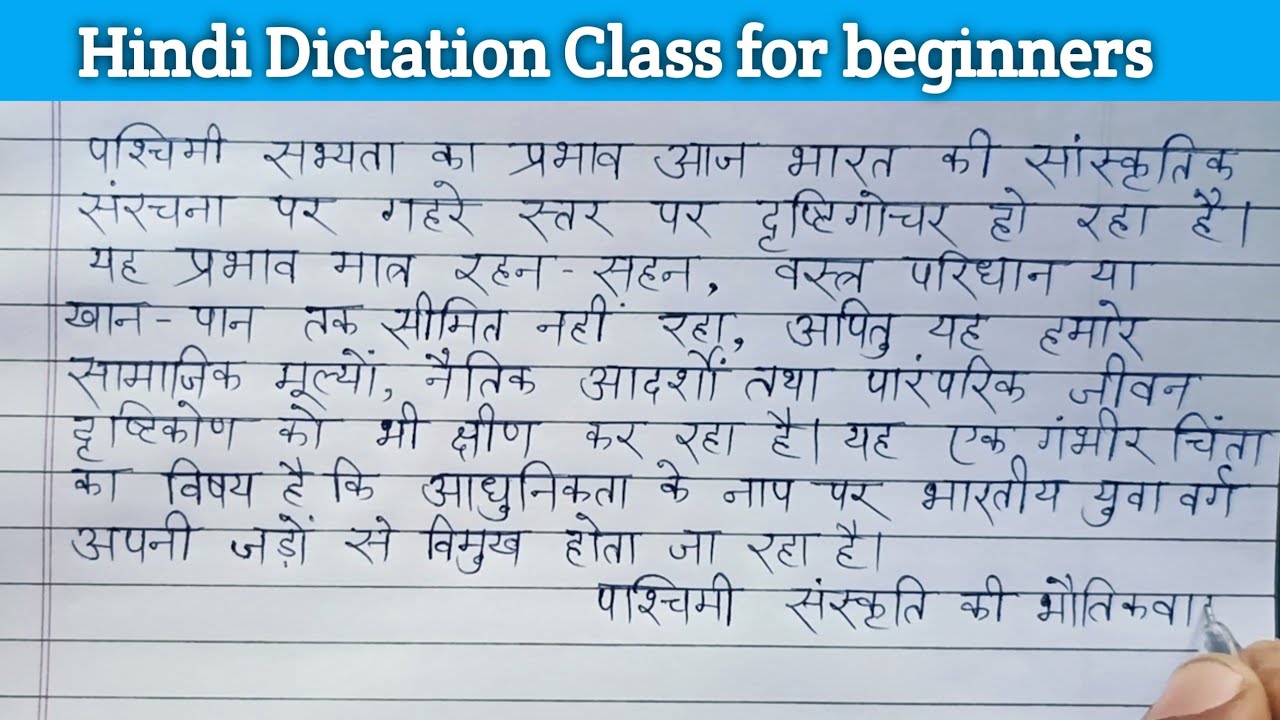 Hindi Dictation Class for beginners
पश्चिमी सभ्यता का प्रभाव आज भारत की सांस्कृतिक
संरचना पर गहरे स्तर पर दृष्टिगोचर हो रहा है।
यह प्रभाव मात्र रहन-सहन, वस्त्र परिधान या
खान-पान तक सीमित नहीं रहा, अपितु यह हमारे
सामाजिक मूल्यों, नैतिक आदर्शों तथा पारंपरिक जीवन
दृष्टिकोण को भी क्षीण कर रहा है। यह एक गंभीर चिंता
का विषय है कि आधुनिकता के नाप पर भारतीय युवा वर्ग
अपनी जड़ों से विमुख होता जा रहा है।
पाश्चिमी संस्कृति की